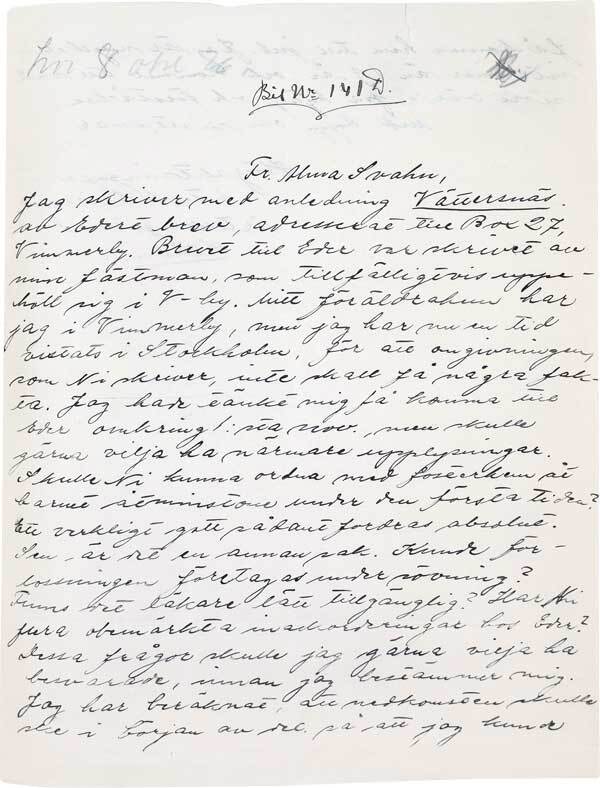 8 okt 26
Bil Nr 141 D.
Fr. Alma Svahn,
Vättersnäs.
Jag skriver med anledning
av Edert brev, adresserat till Box 27,
Vimmerby. Brevet till Eder var skrivet av
min fästman, som tillfälligtvis uppe-
höll sig i V-by. Mitt föräldrahem har
jag i Vimmerby, men jag har nu en tid
vistats i Stockholm, för att omgivningen,
som Ni skriver, inte skall få några fak-
ta. Jag hade tänkt mig få komma till
Eder omkring 1:sta nov., men skulle
gärna vilja ha närmare upplysningar.
Skulle Ni kunna ordna med fosterhem åt
barnet åtminstone under den första tiden?
Ett verkligt gott sådant fordras absolut.
Sen är det en annan sak. Kunde för-
lossningen företagas under sövning?
Finns det läkare lätt tillgänglig? Har Ni
fura obemärkta inackorderingar hos Eder?
Dessa frågor skulle jag gärna vilja ha
besvarade, innan jag bestämmer mig.
Jag har beräknat, att nedkomsten skulle
ske i början av dec. så att jag kunde